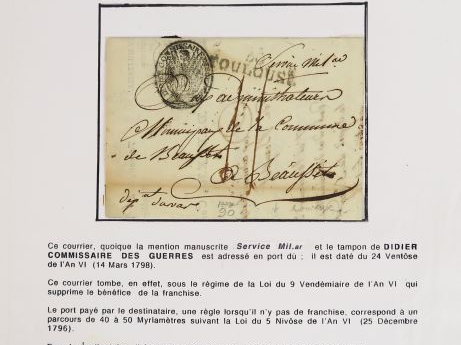 TOULOUSE
Service Mil.re
administrateur
Municipaux de la Commune
de Beausset
a Beausset
dép.t du var
Ce courrier, quoique la mention manuscrite Service Mil.ar et le tampon de DIDIER
COMMISSAIRE DES GUERRES est adressé en port dû ; il est daté du 24 Ventôse
de l'An VI (14 Mars 1798).
Ce courrier tombe, en effet, sous le régime de la Loi du 9 Vendémiaire de l'An VI qui
supprime le bénéfice de la franchise.
Le port payé par le destinataire, une règle lorsqu'il n'y pas de franchise, correspond à un
parcours de 40 à 50 Myriamètres suivant la Loi du 5 Nivôse de l'An VI (25 Décembre
1796).